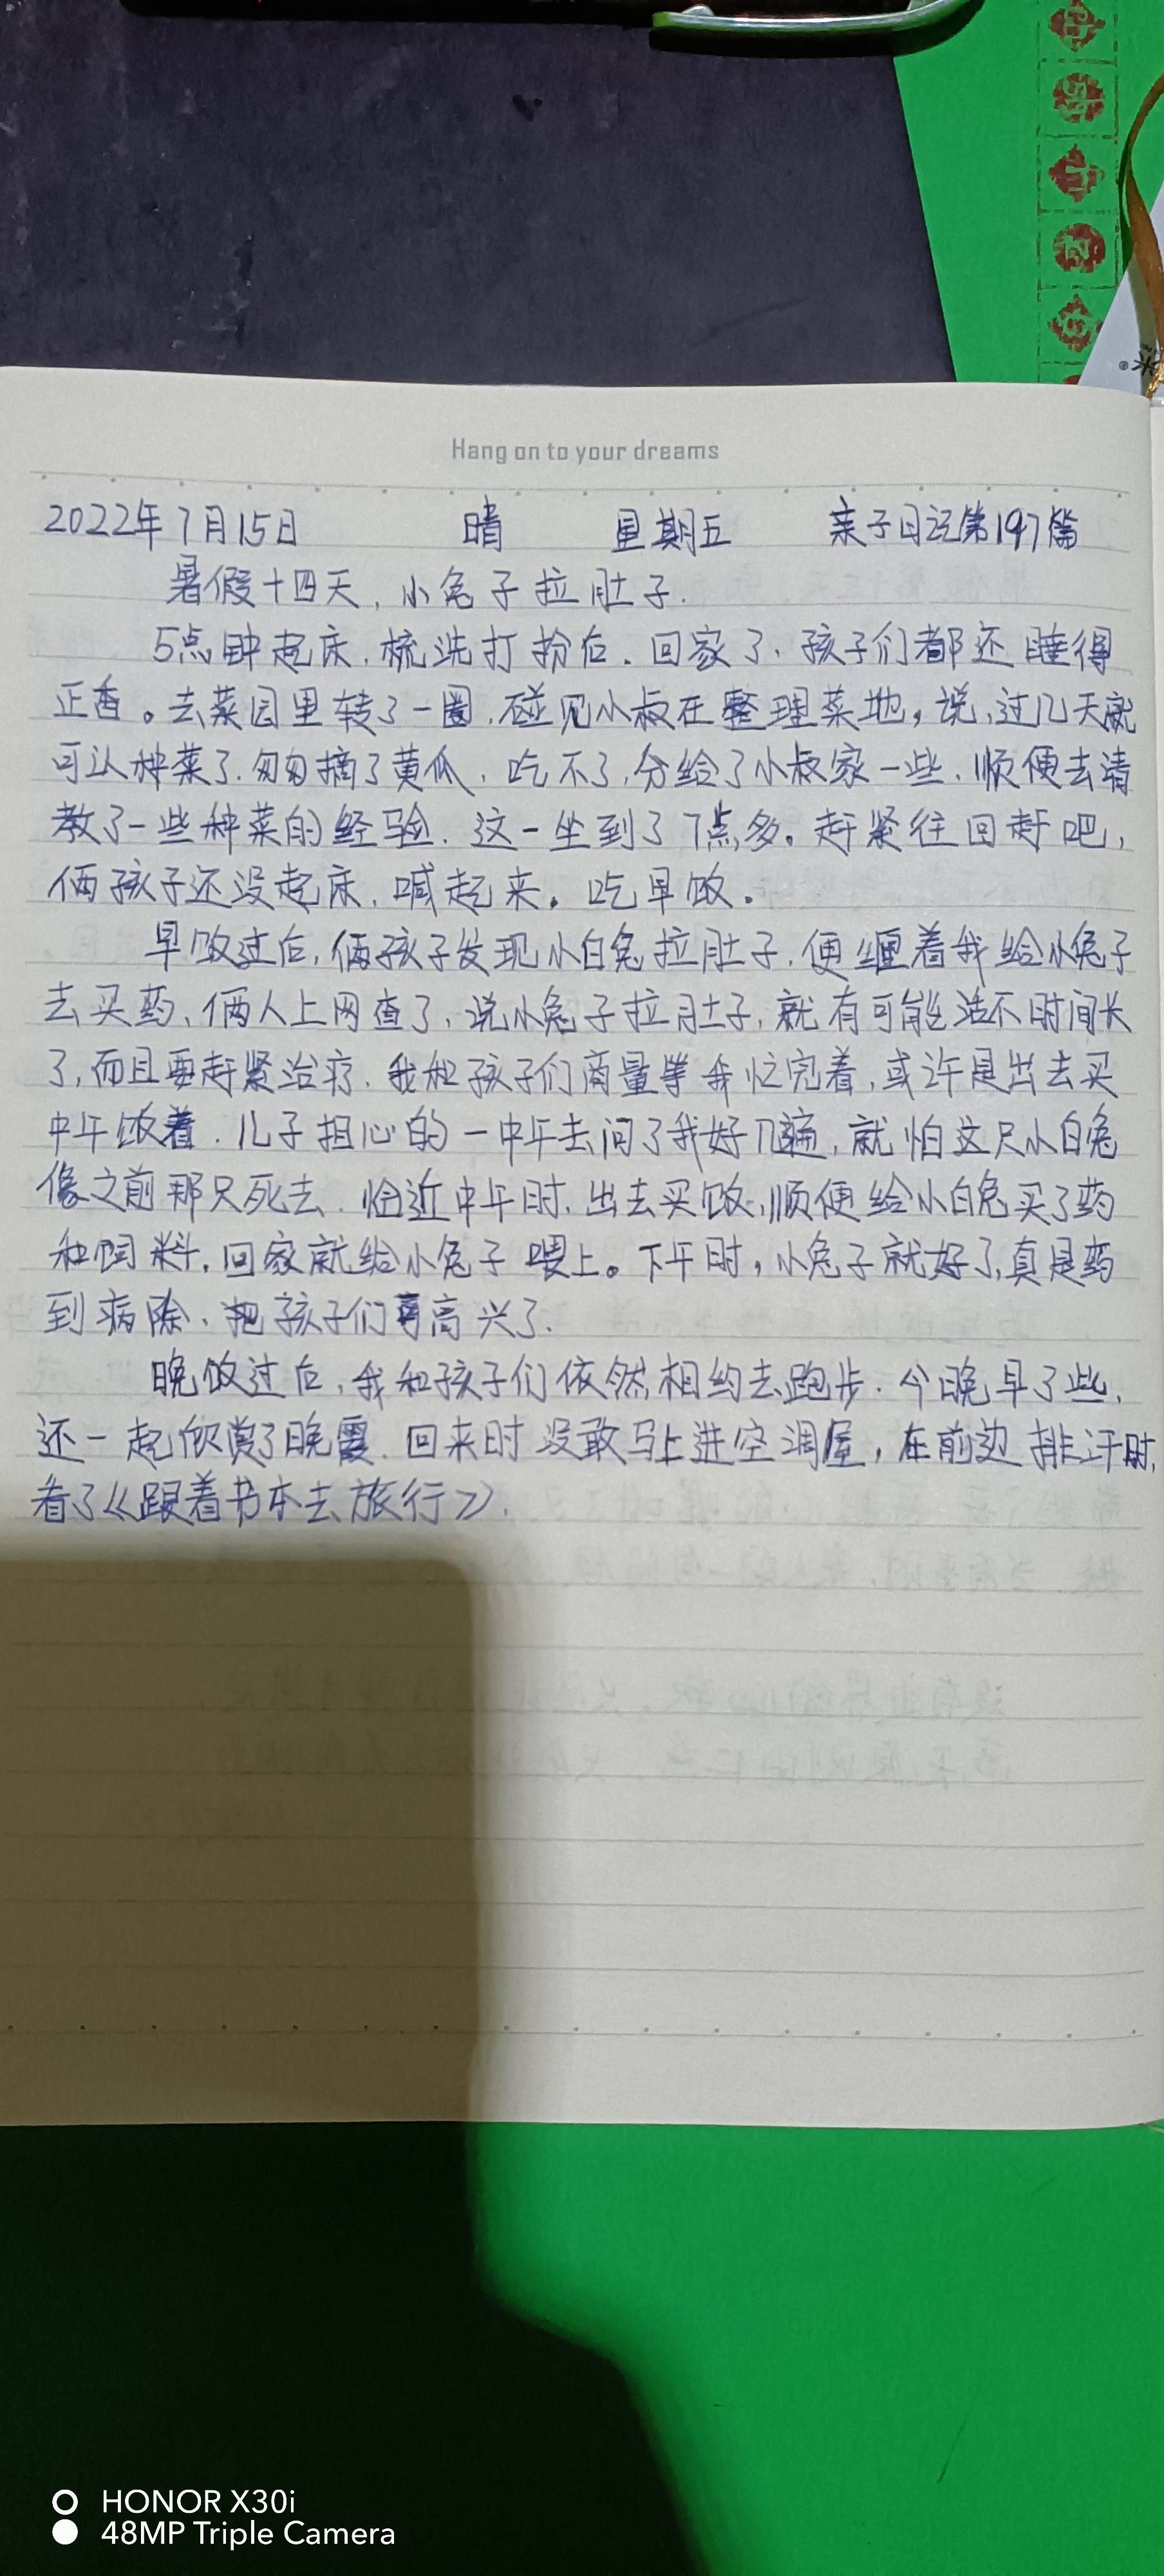 Hang on to your dreams
2022年7月15日 晴 星期五 亲子日记第197篇
暑假十四天,小兔子拉肚子.
5点钟起床,梳洗打扮后.回家了,孩子们都还睡得
正香。去菜园里转了一圈,碰见小叔在整理菜地,说,过几天就
可以种菜了.匆匆摘了黄瓜,吃不了,分给了小叔家一些,顺便去请
教了一些种菜的经验.这一坐到了7点多。赶紧往回赶吧,
俩孩子还没起床,喊起来。吃早饭。
早饭过后,俩孩子发现小白兔拉肚子,便缠着我给小兔子
去买药,俩人上网查了,说小兔子拉肚子,就有可能活不时间长
了,而且要赶紧治疗.我和孩子们商量等我忙完着,或许是出去买
中午饭着.儿子担心的一中午去问了我好几遍,就怕这只小白兔
像之前那只死去.临近中午时,出去买饭,顺便给小白兔买了药
和饲料,回家就给小兔子喂上。下午时,小兔子就好了,真是药
到病除,把孩子们可高兴了.
晚饭过后,我和孩子们依然相约去跑步.今晚早了些,
还一起欣赏了晚霞.回来时没敢马上进空调屋,在前边排汗时,
看了《跟着书本去旅行》.
HONOR X30i
48MP Triple Camera